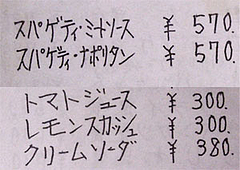 スパゲティ・ミートソース ¥ 570.
スパゲティ・ナポリタン ¥ 570.
トマトジュース ¥ 300.
レモンスカッシュ ¥ 300.
クリームソーダ ¥ 380.